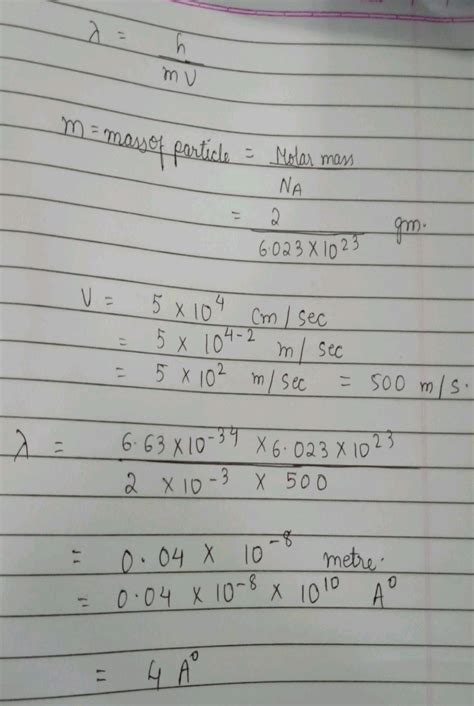 λ = h / mv
m = mass of particle = Molar mass / NA
= 2 / 6.023 × 10²³ gm.
V = 5 × 10⁴ cm / sec
= 5 × 10⁴⁻² m / sec
= 5 × 10² m / sec = 500 m / s.
λ = 6.63 × 10⁻³⁴ × 6.023 × 10²³ / 2 × 10⁻³ × 500
= 0.04 × 10⁻⁸ metre.
= 0.04 × 10⁻⁸ × 10¹⁰ A⁰
= 4 A⁰